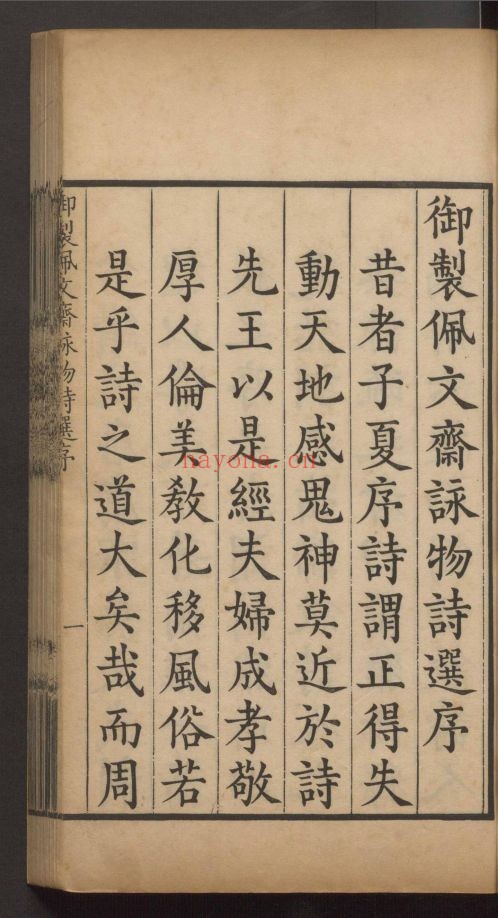 御製佩文齋詠物詩選序
昔者子夏序詩謂正得失
動天地感鬼神莫近於詩
先王以是經夫婦成孝敬
厚人倫美教化移風俗若
是乎詩之道大矣哉而周
御製佩文齋詠物詩選序
一
nayona.cn